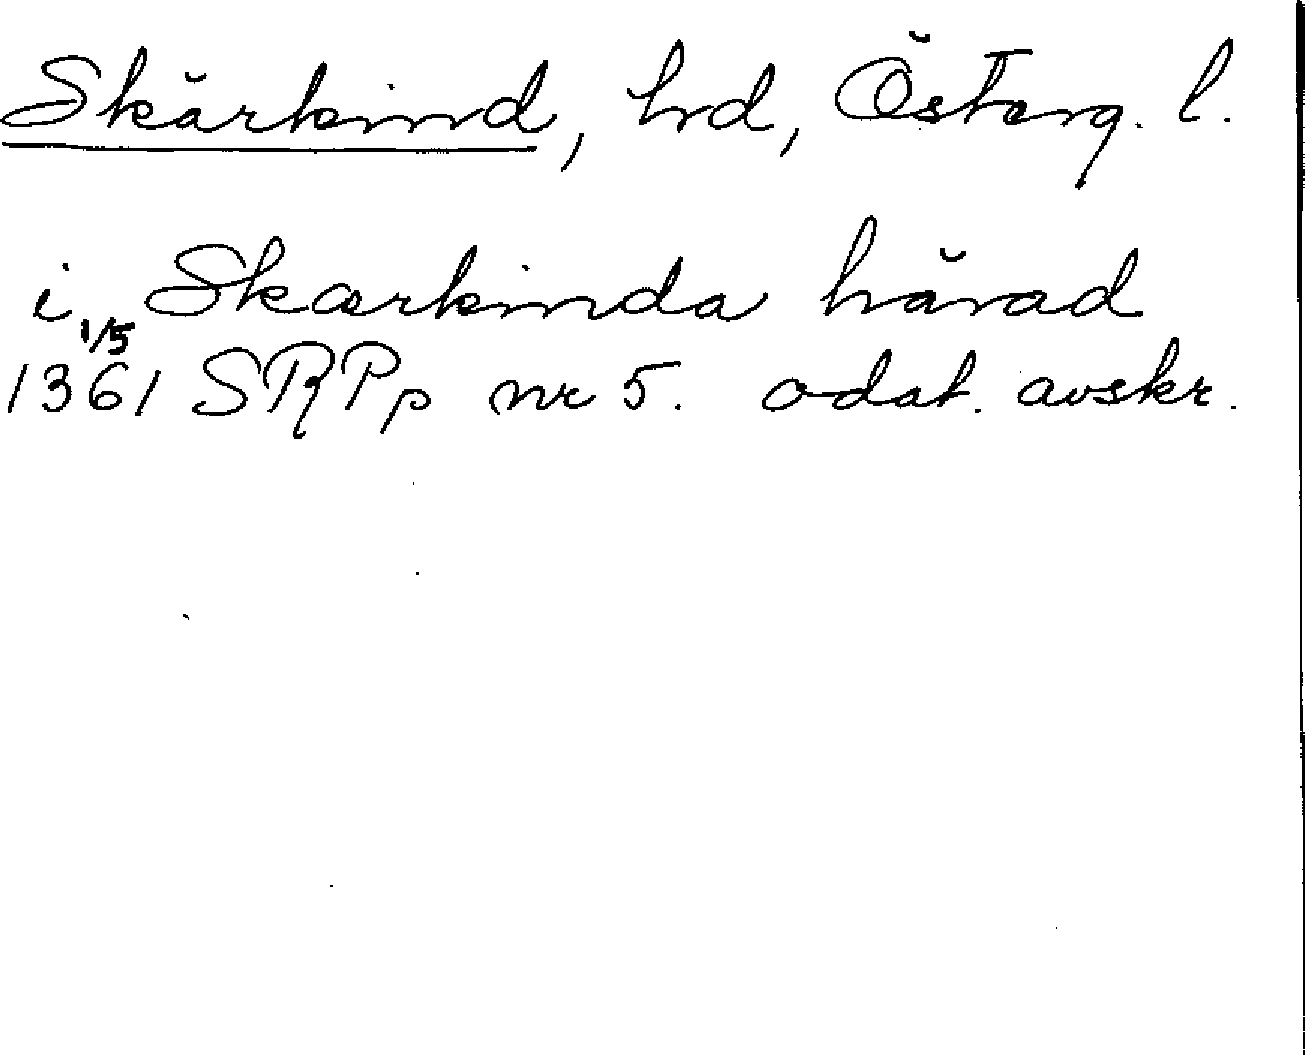 Skärkind, hd, Österg. l.
i Skærkinda härad
1/5
1361 SRPp nr 5. odat. avskr.